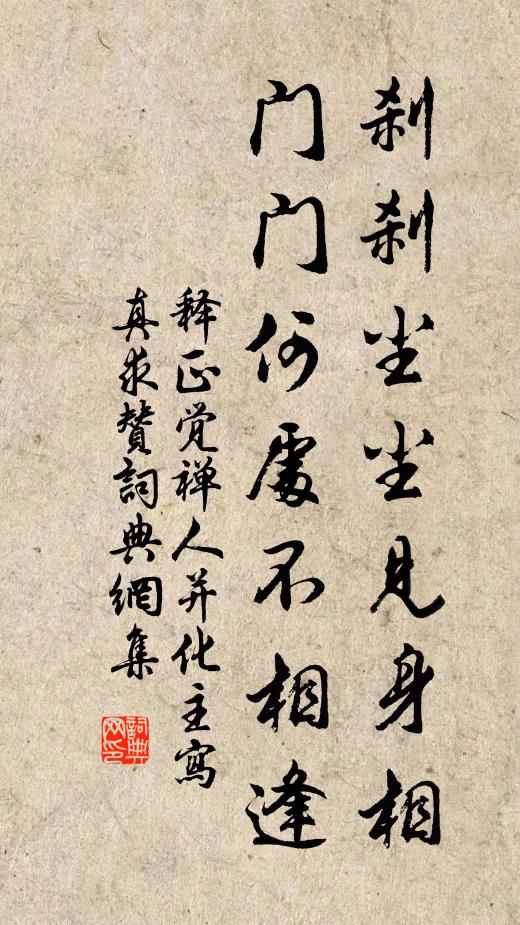 刹刹尘尘见身相
门门何處不相逢
释正觉禅人并化主寫
真求赞詞典網集
詞典网印